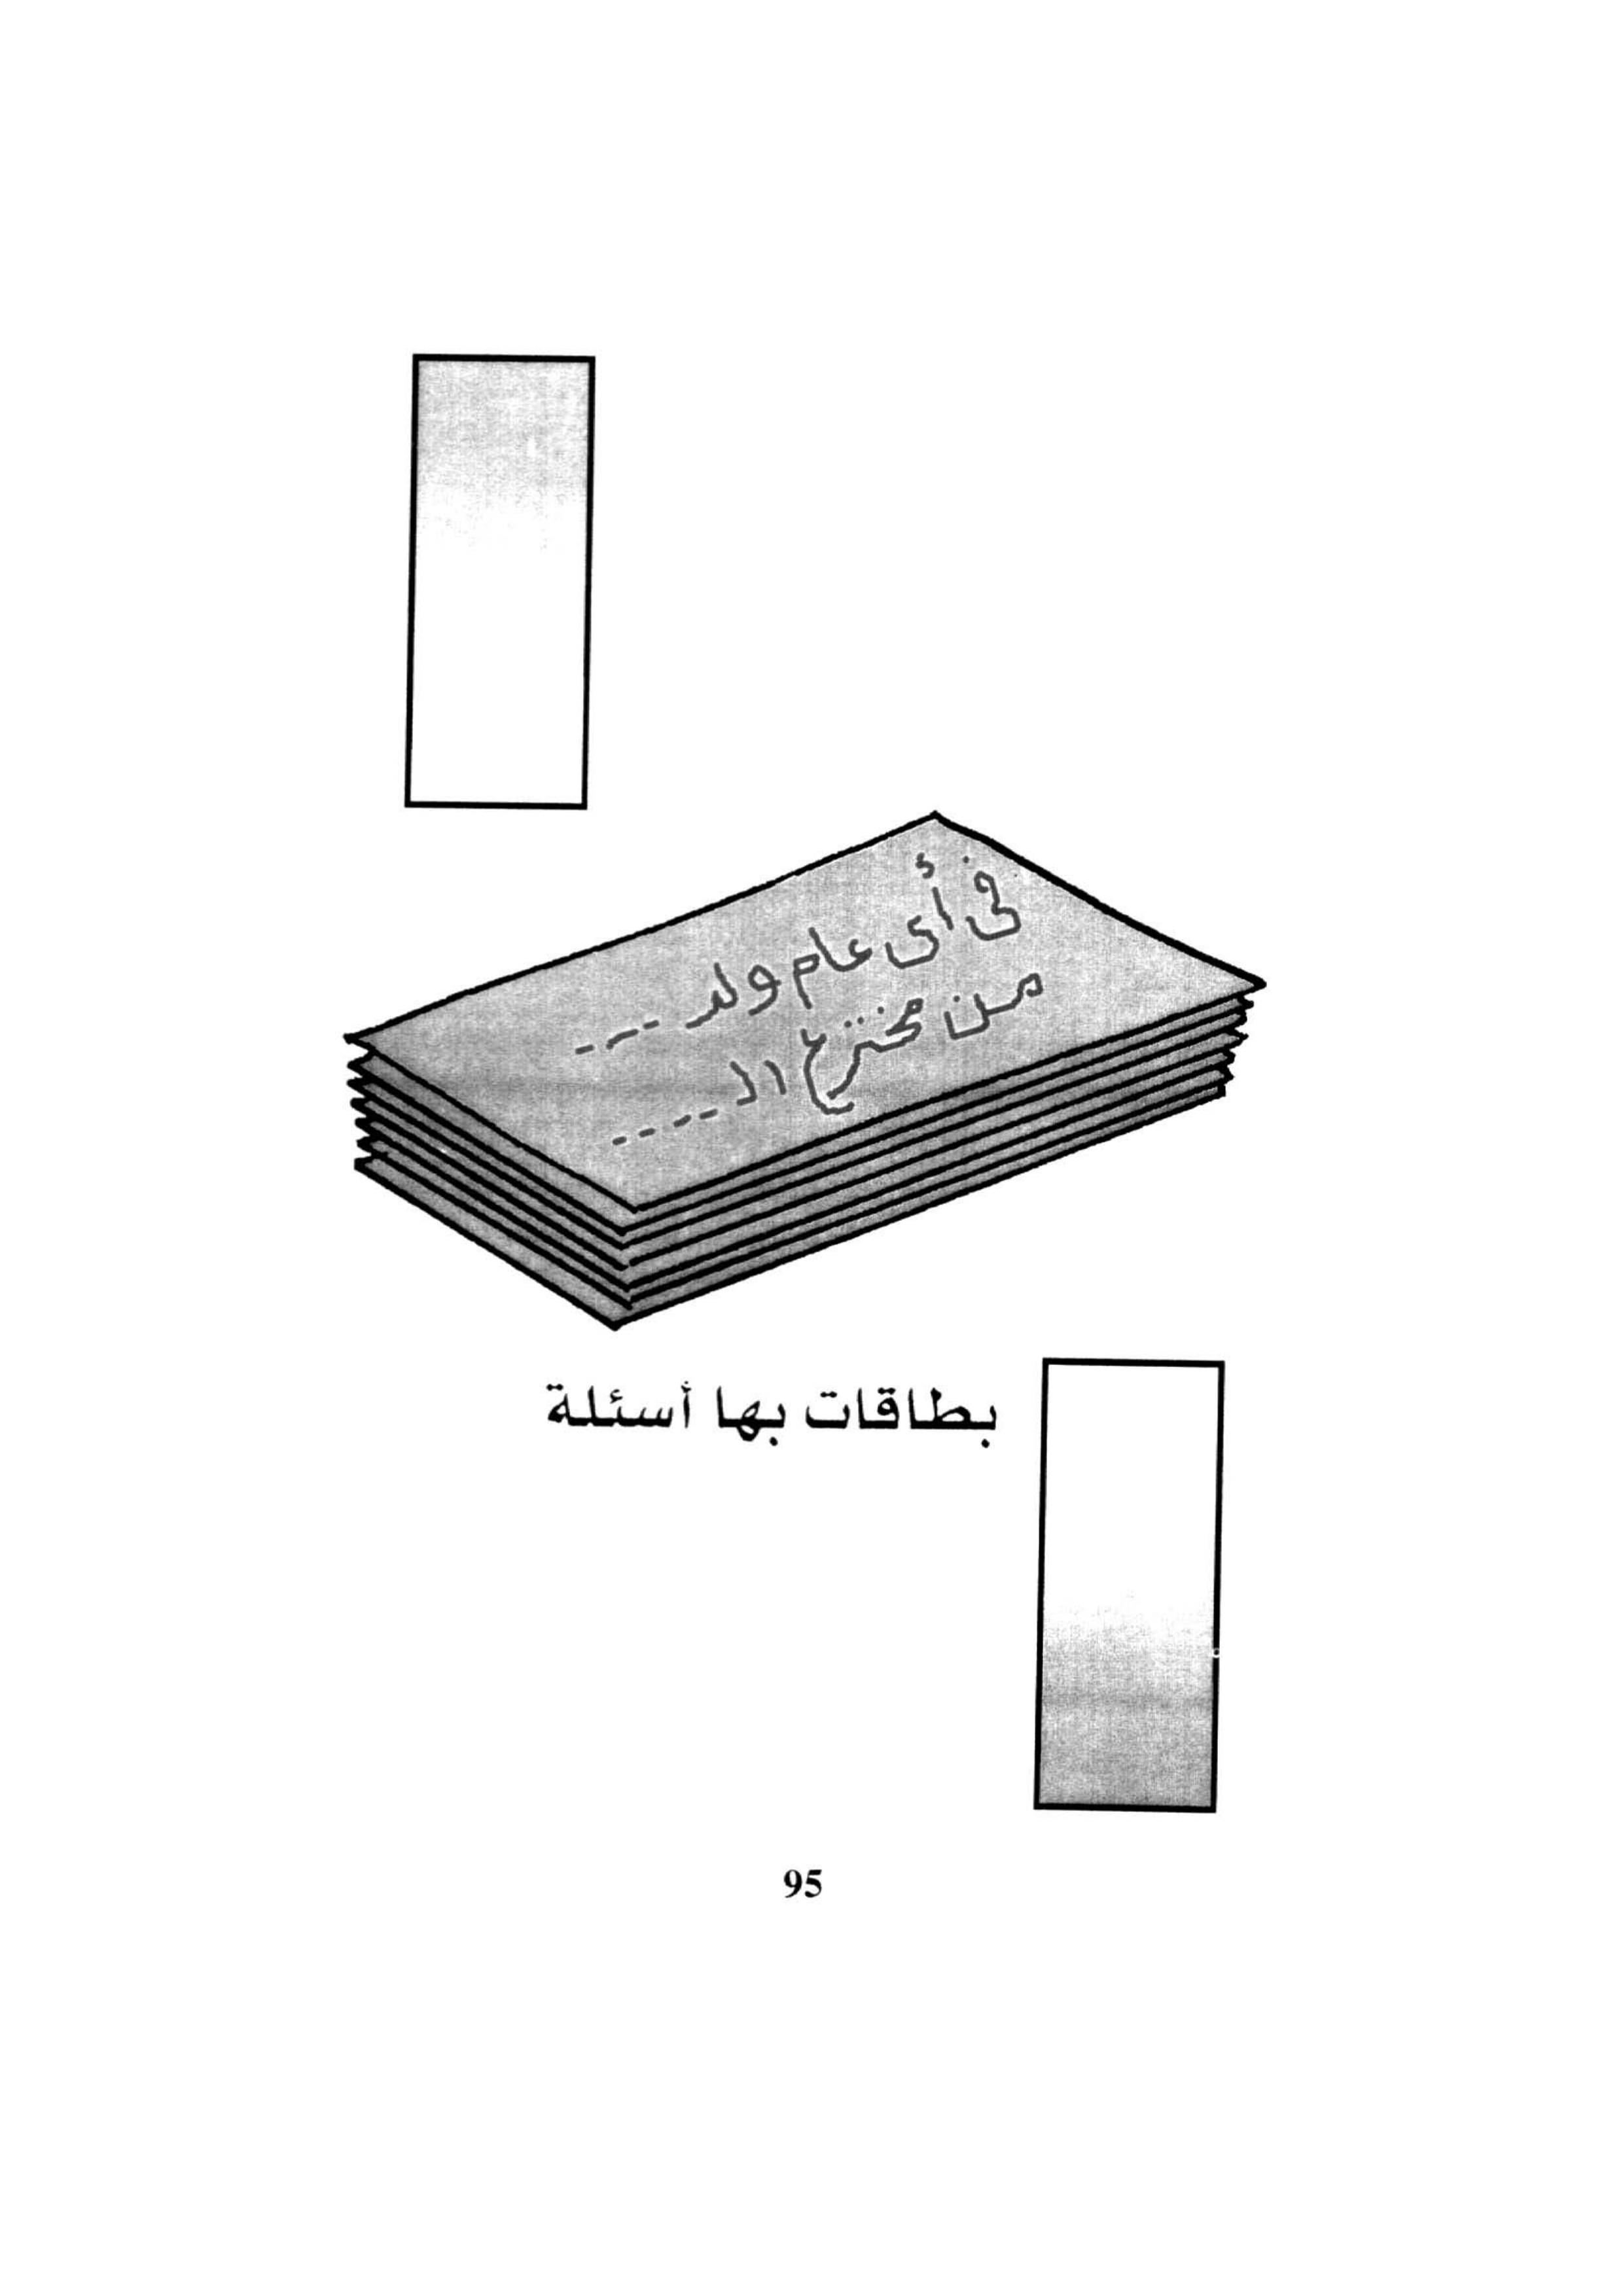 فى أى عام ولد ---
من مخترع الـ ----
بطاقات بها أسئلة
95